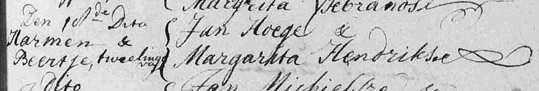 Margrita Sebrands
Den 18de Dito
Harmen &
Beertje, tweelinge
van
Jan Hoege &
Margarita Hendrikse
Dito
Jan Michielse